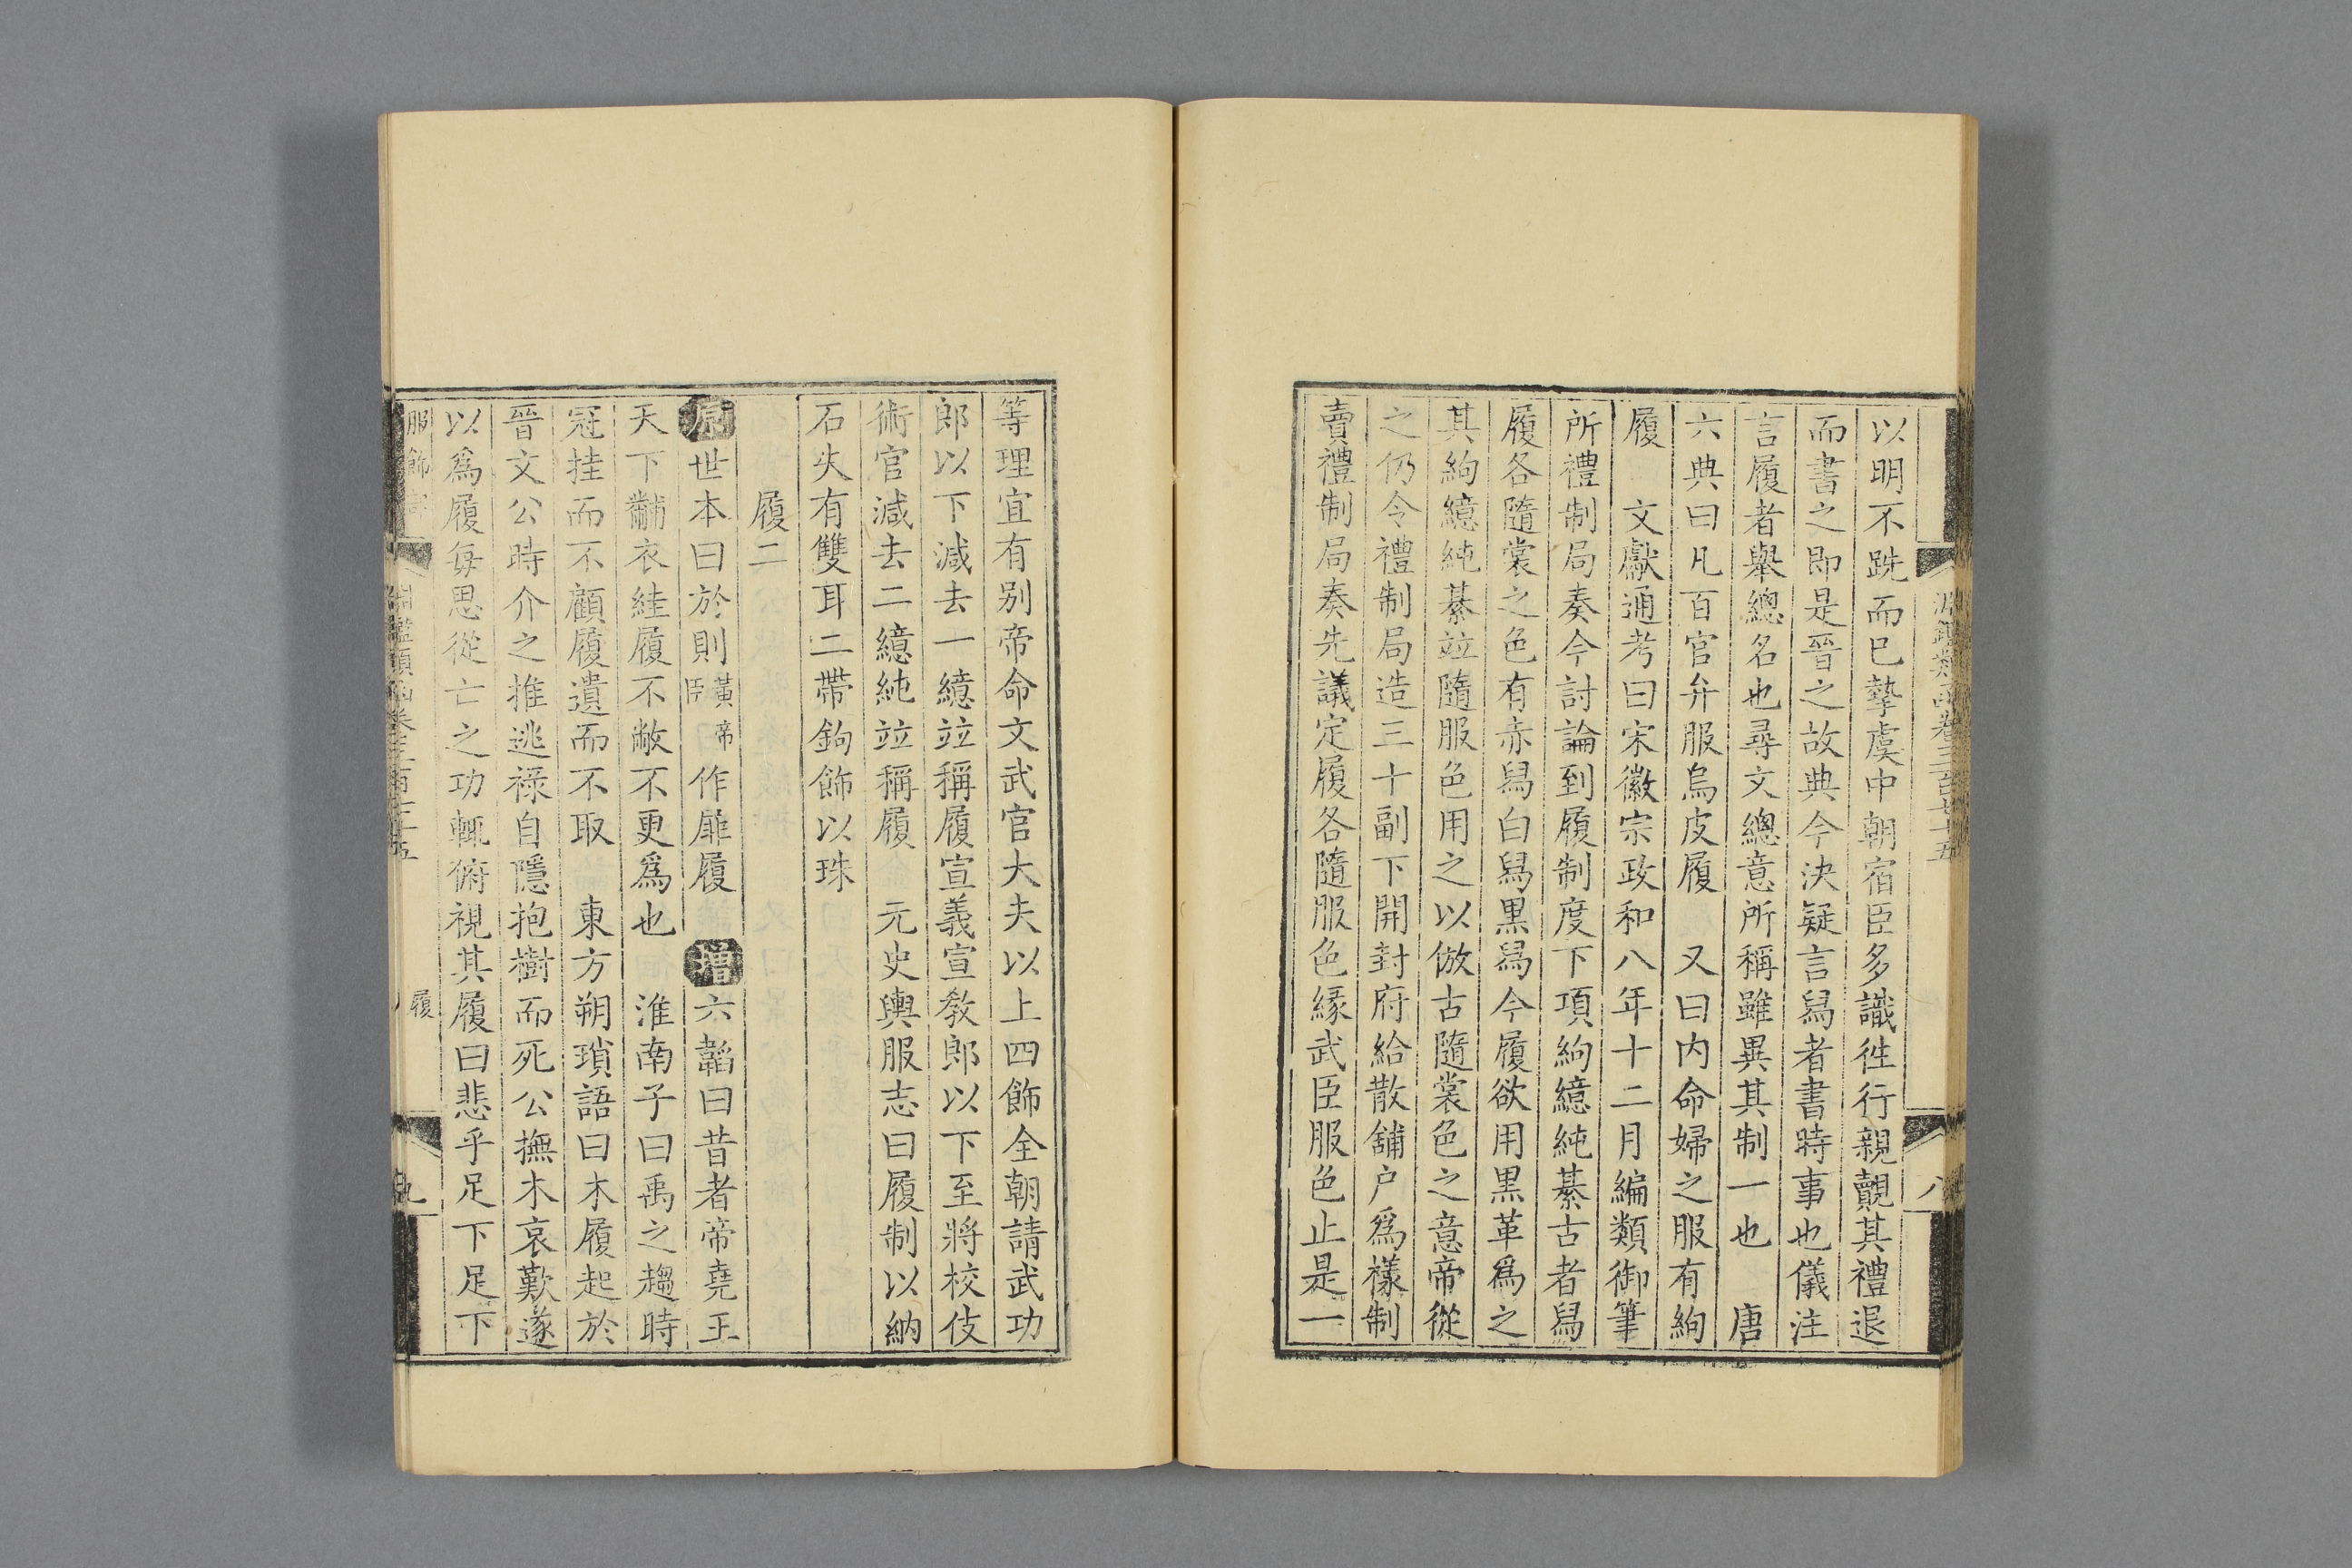 以明不跣而已摯虞中朝宿臣多識徃行親覿其禮退
而書之即是晉之故典今決疑言舄者書時事也儀注
言履者舉總名也尋文總意所稱雖異其制一也　唐
六典曰凡百官弁服烏皮履　又曰内命婦之服有絇
履　文獻通考曰宋徽宗政和八年十二月編類御筆
所禮制局奏今討論到履制度下項絇繶純綦古者舄
履各隨裳之色有赤舄白舄黒舄今履欲用黒革爲之
其絇繶純綦竝隨服色用之以倣古隨裳色之意帝從
之仍令禮制局造三十副下開封府給散舖户爲樣制
賣禮制局奏先議定履各隨服色縁武臣服色止是一
等理宜有别帝命文武官大夫以上四飾全朝請武功
郎以下減去一繶竝稱履宣義宣教郎以下至將校伎
術官減去二繶純竝稱履　元史輿服志曰履制以納
石失有雙耳二帶鉤飾以珠
履二
原世本曰於則黃帝臣作屝履　增六韜曰昔者帝堯王
天下黼衣絓履不敝不更爲也　淮南子曰禹之趨時
冠挂而不顧履遺而不取　東方朔瑣語曰木履起於
晉文公時介之推逃祿自隱抱樹而死公撫木哀歎遂
以爲履每思從亡之功輒俯視其履曰悲乎足下足下
服飾部
淵鑑類函卷三百七十五
履
九
淵鑑類函卷三百七十五
八